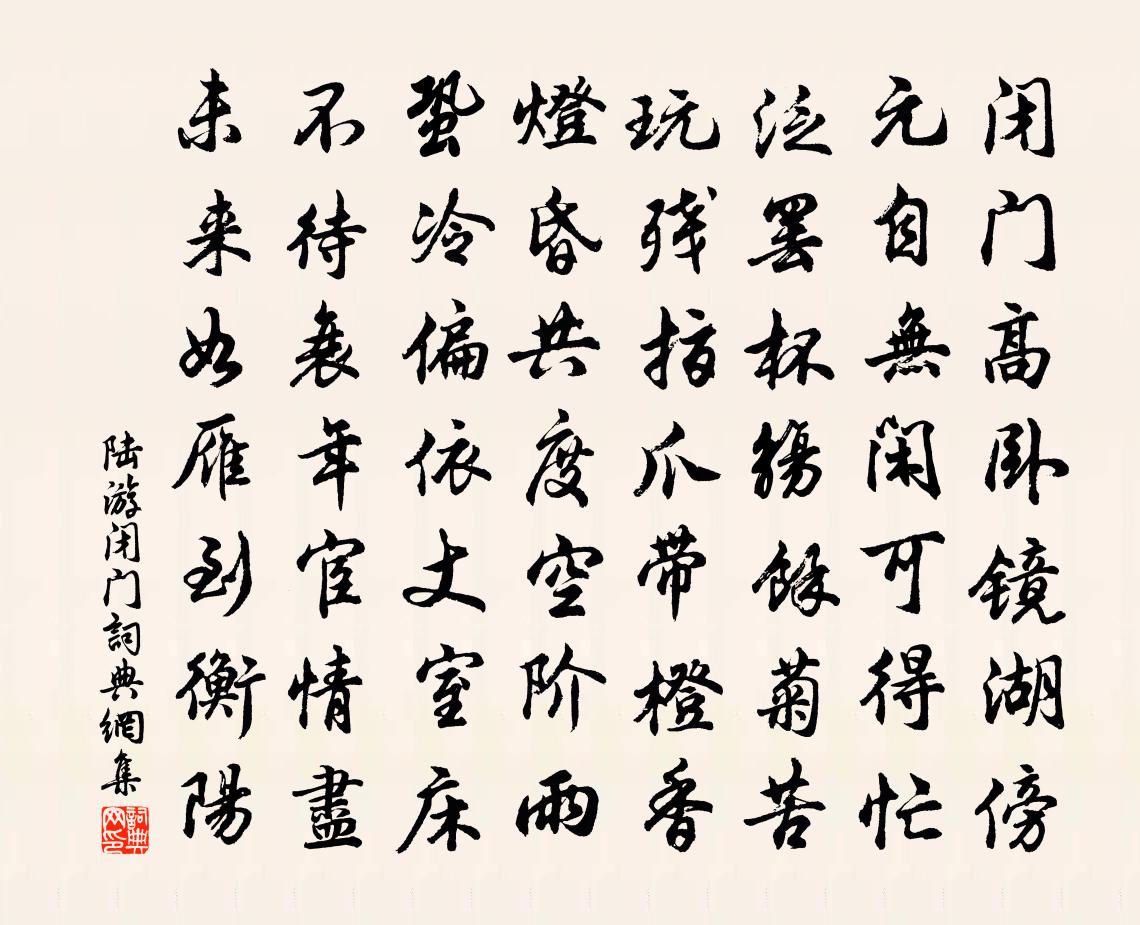 闭门高卧镜湖傍
元自無闲可得忙
泛罢杯觴餘菊苦
玩残指爪带橙香
燈昏共度空阶雨
蛩冷偏依丈室床
不待衰年宦情盡
未来如雁到衡陽
陆游闭门詞典網集
詞典网印